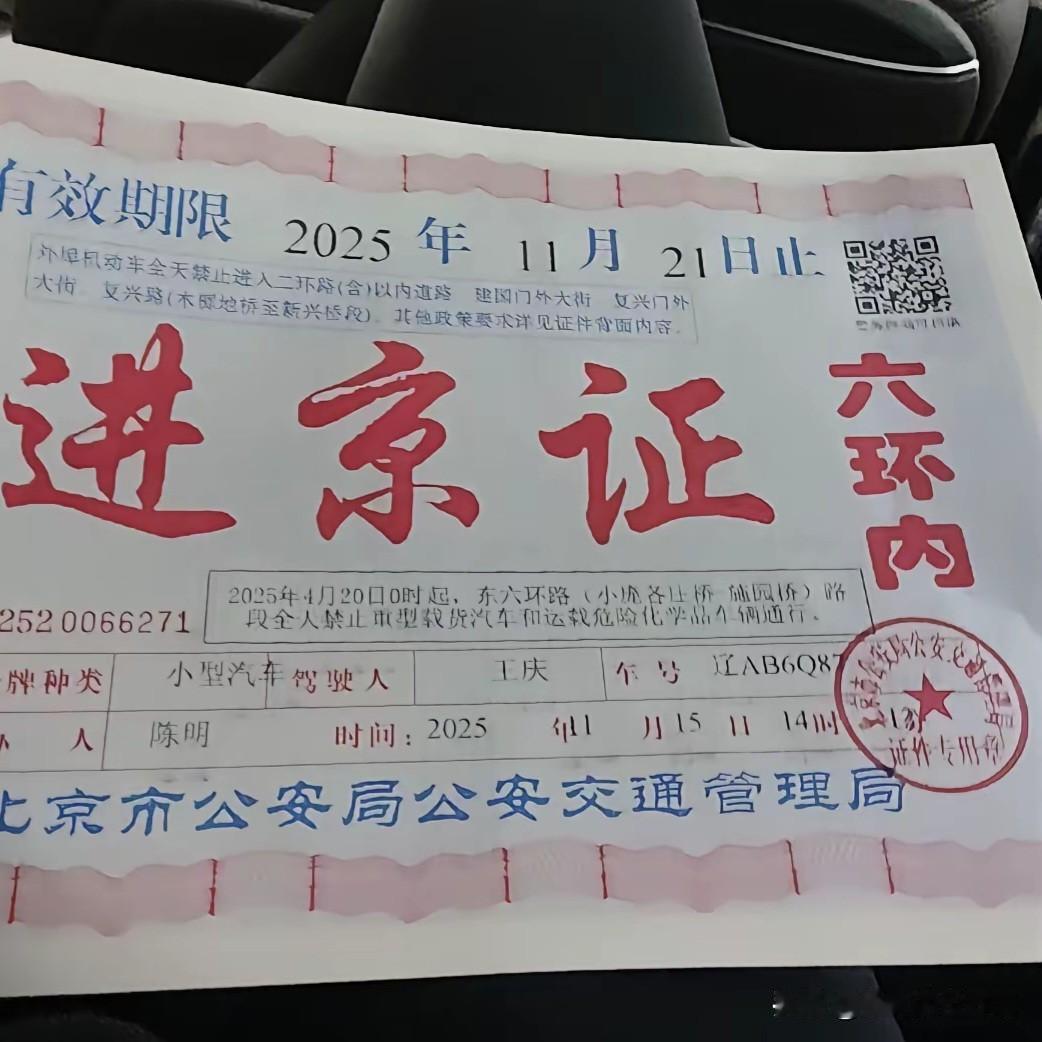 有效期限 2025 年 11 月 21 日止
外埠机动车全天禁止进入二环路(含)以内道路 建国门外大街 复兴门外
大街 复兴路(木樨地桥至新兴桥段). 其他政策要求详见证件背面内容.
进京证
六环内
2520066271
2025年4月20日0时起，东六环路（小庞各庄桥 施园桥）路
段全天禁止重型载货汽车和运载危险化学品车辆通行。
牌种类 小型汽车 驾驶人 王庆 车号 辽AB6Q87
办 人 陈明 时间：2025 年11 月15 日 14时 13分
北京市公安局公安交通管理局
证件专用章